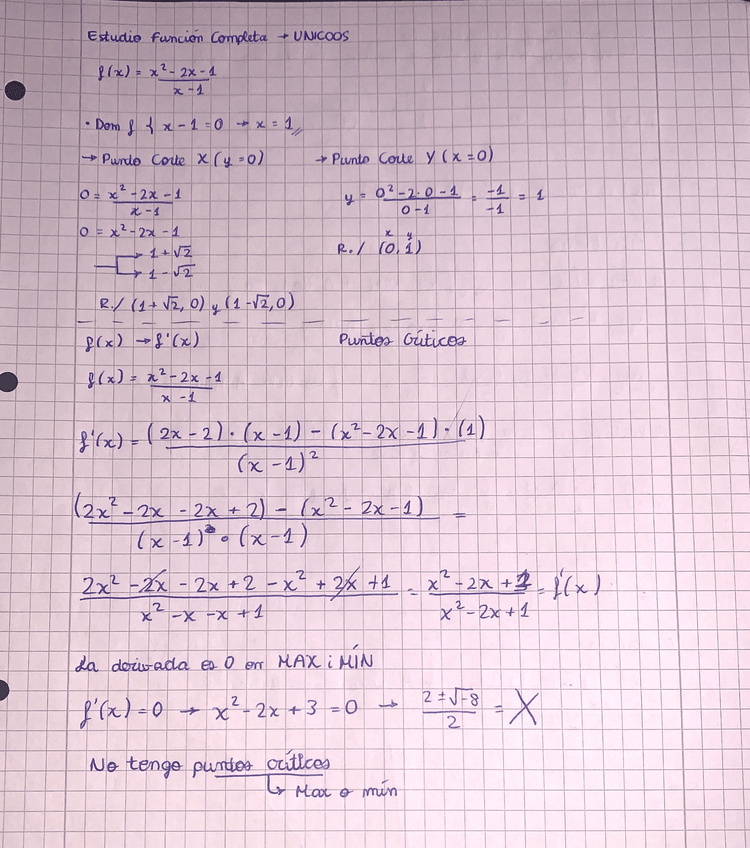 Estudio Función Completa → UNICOOS
f(x) = x² - 2x - 1 / x - 1
· Dom f { x - 1 = 0 → x = 1 //
→ Punto Corte X (y = 0)
→ Punto Corte Y (x = 0)
0 = x² - 2x - 1 / x - 1
y = 0² - 2·0 - 1 / 0 - 1 = -1 / -1 = 1
0 = x² - 2x - 1
→ 1 + √2
→ 1 - √2
x y
R./ (0, 1)
R./ (1 + √2, 0) y (1 - √2, 0)
f(x) → f'(x)
Puntos Críticos
f(x) = x² - 2x - 1 / x - 1
f'(x) = (2x - 2) · (x - 1) - (x² - 2x - 1) · (1) / (x - 1)²
(2x² - 2x - 2x + 2) - (x² - 2x - 1) / (x - 1) · (x - 1) =
2x² - 2x - 2x + 2 - x² + 2x + 1 / x² - x - x + 1 = x² - 2x + 3 / x² - 2x + 1 = f'(x)
La derivada es 0 en MAX i MÍN
f'(x) = 0 → x² - 2x + 3 = 0 → 2 ± √-8 / 2 = X
No tengo puntos críticos
↳ Max o mín